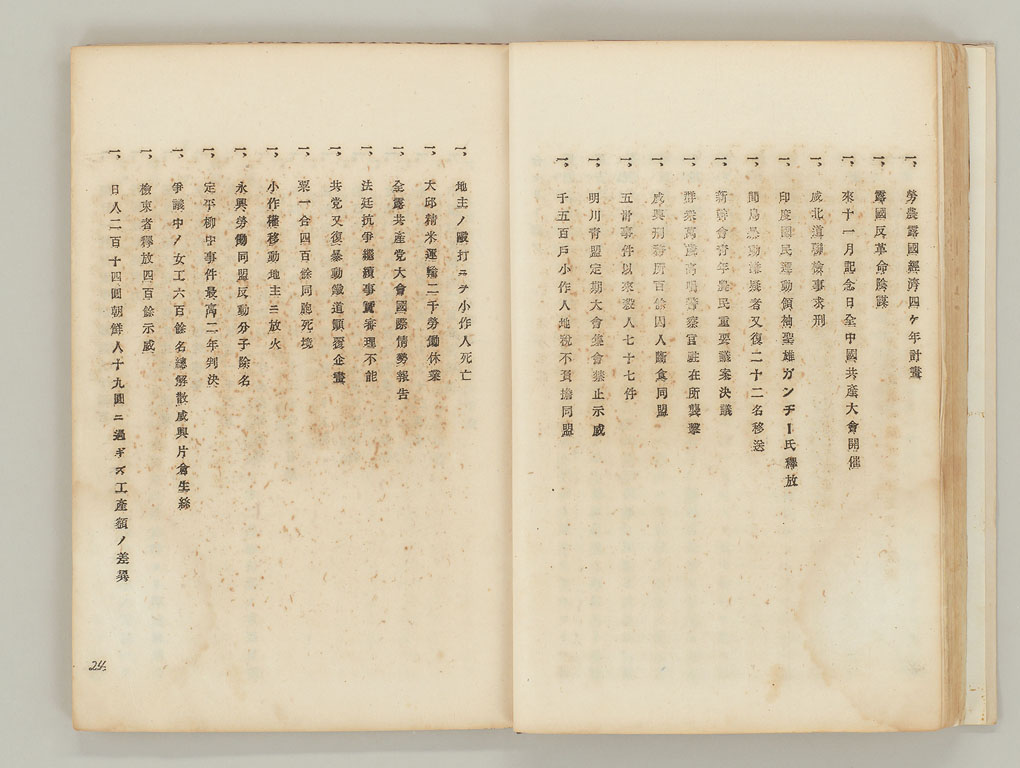 一、勞農露國經濟四ケ年計畫
一、露國反革命陰謀
一、來十一月記念日全中國共產大會開催
一、咸北道聯檢事求刑
一、印度國民運動領袖聖雄ガンヂー氏釋放
一、間島暴動嫌疑者又復二十二名移送
一、新幹會青年農民重要議案決議
一、群衆萬歲高唱警察官駐在所襲擊
一、咸興刑務所百餘囚人斷食同盟
一、五卅事件以來殺人七十七件
一、明川青盟定期大會集會禁止示威
一、千五百戶小作人地稅不負擔同盟
一、地主ノ毆打ニテ小作人死亡
一、大邱精米運輸二千勞働休業
一、全露共產党大會國際情勢報告
一、法廷抗爭繼續事實審理不能
一、共党又復暴動鐵道顚覆企畫
一、粟一合四百餘同胞死境
一、小作權移動地主ニ放火
一、永興勞働同盟反動分子除名
一、定平柳中事件最高二年判決
一、爭議中ノ女工六百餘名總解散咸興片倉生絲
一、檢束者釋放四百餘示威
一、日人二百十四圓朝鮮人十九圓ニ過ギズ工產額ノ差異
24.